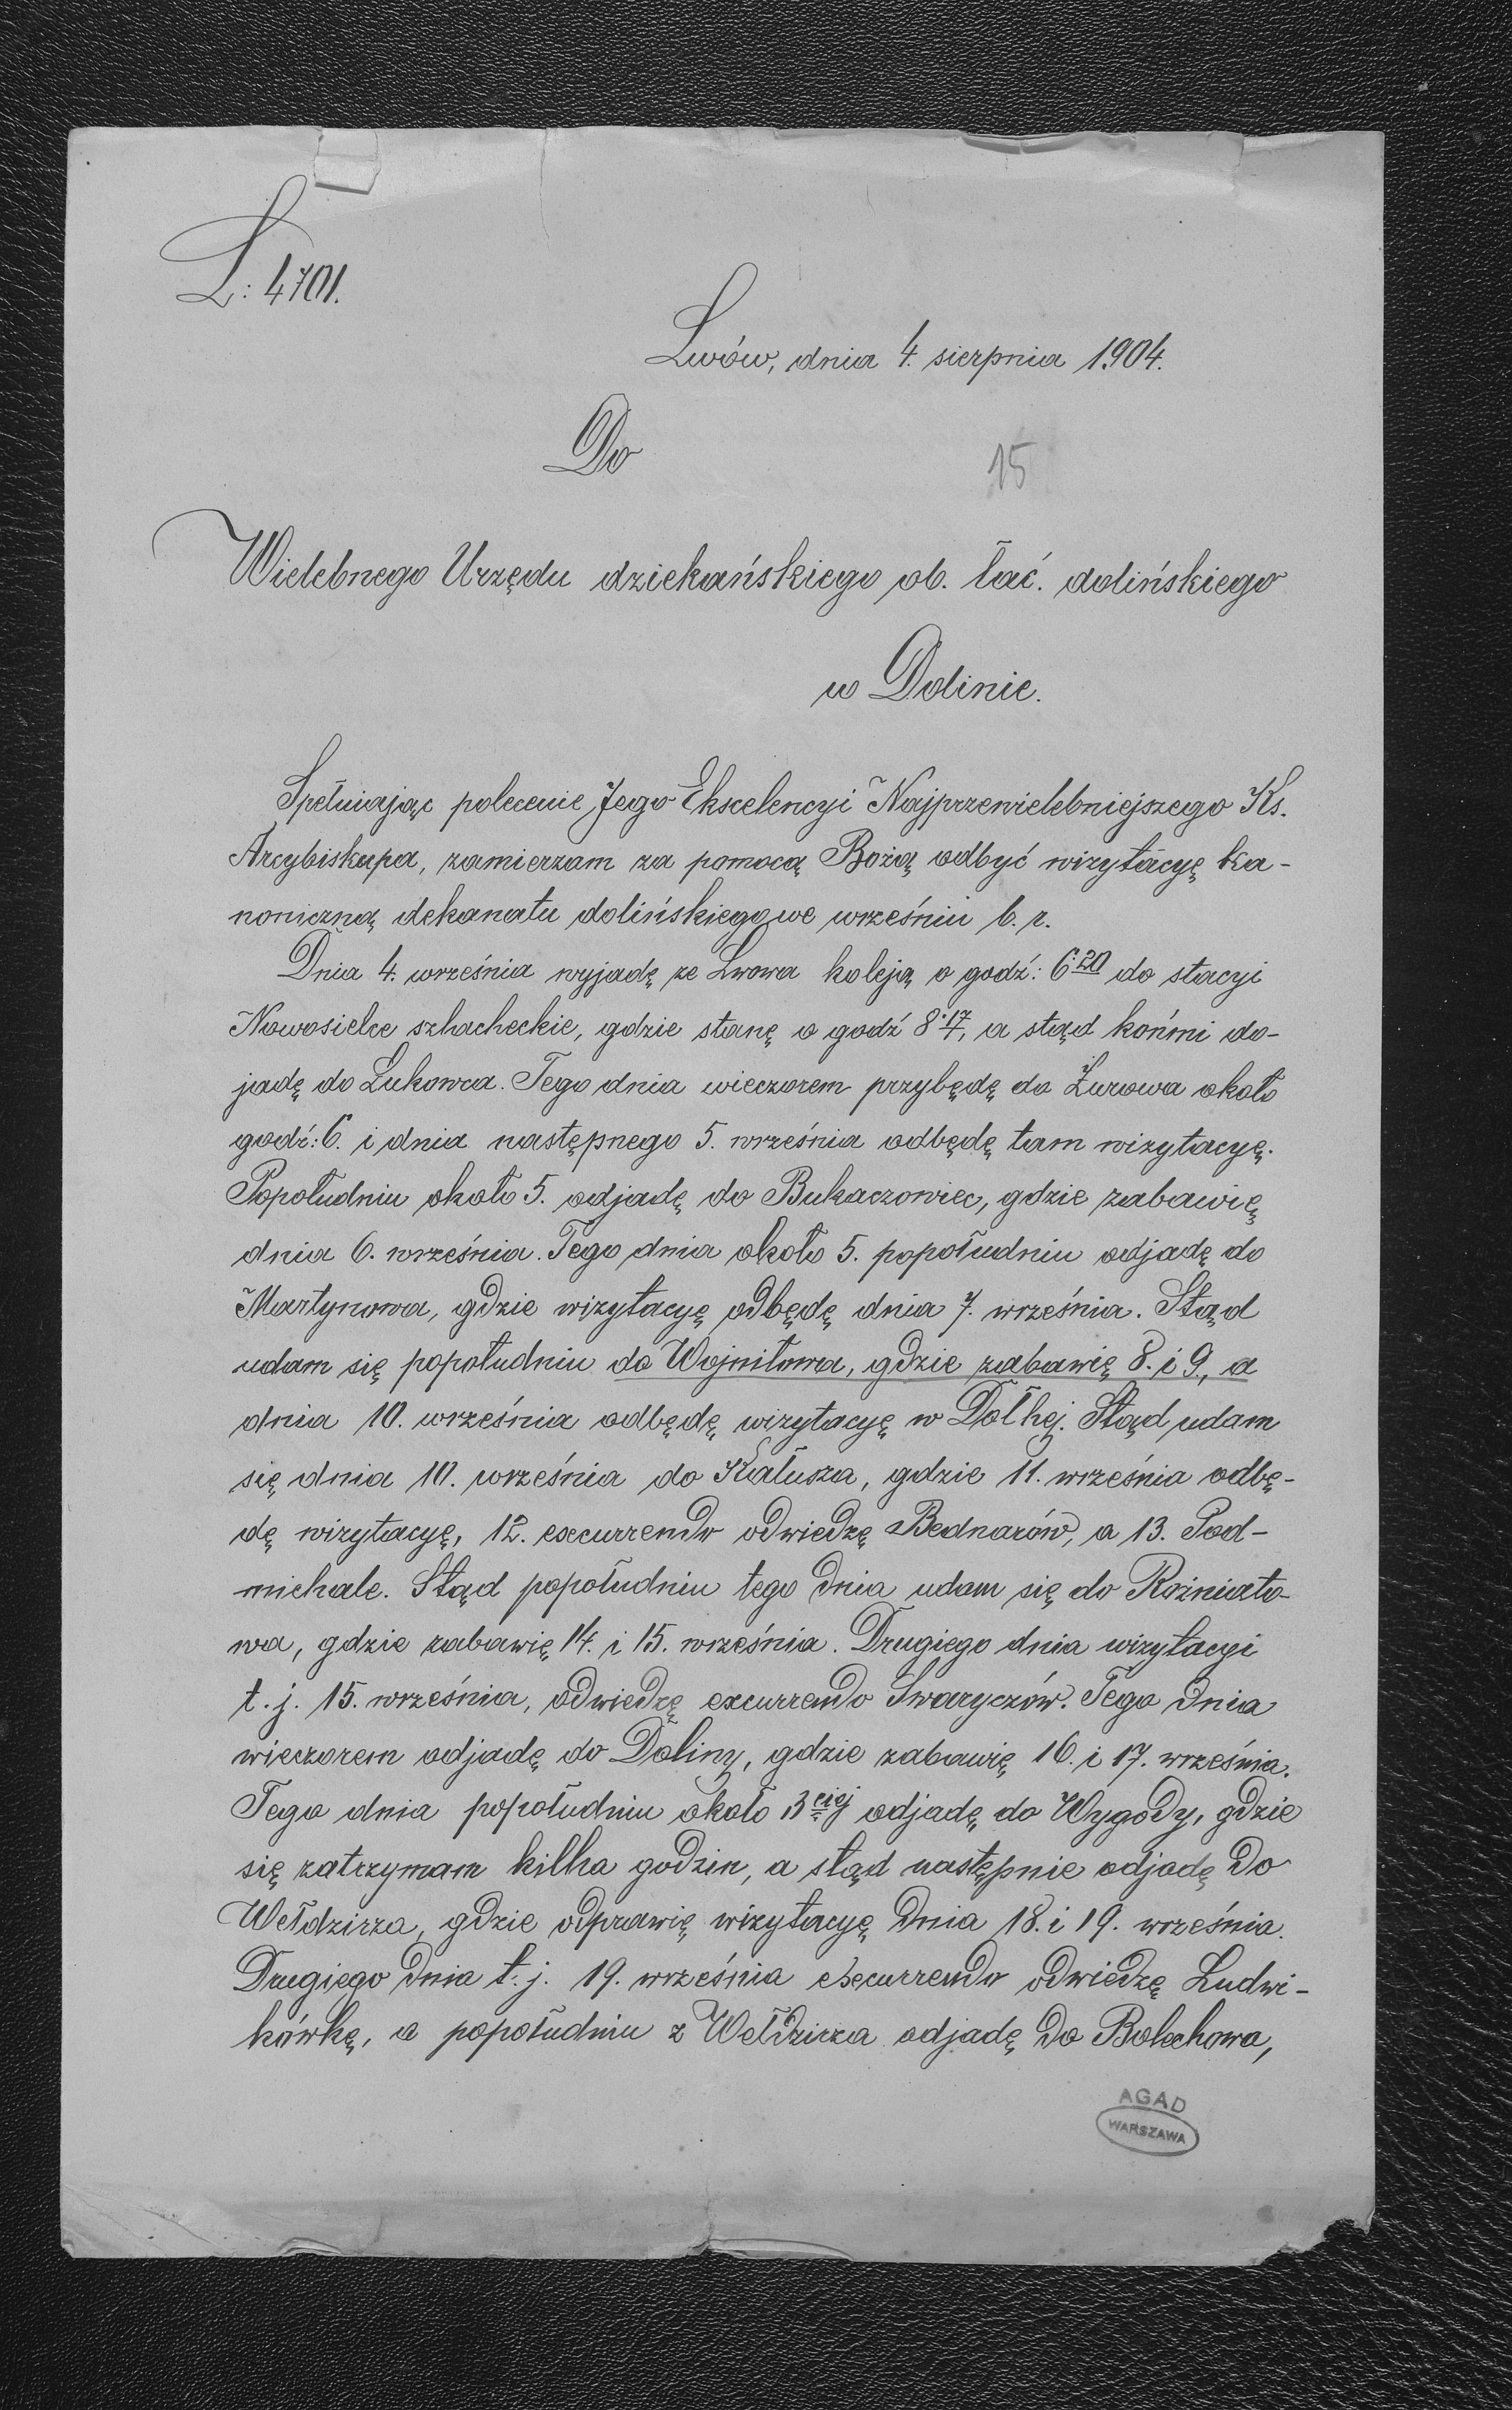 L: 4701.
Lwów, dnia 4. sierpnia 1904.
Do
15
Wielebnego Urzędu dziekańskiego ob. łać. dolińskiego
w Dolinie.
Spełniając polecenie Jego Ekscelencyi Najprzewielebniejszego Ks.
Arcybiskupa, zamierzam za pomocą Bożą odbyć wizytacyę ka-
noniczną dekanatu dolińskiego we wrześniu b. r.
Dnia 4. września wyjadę ze Lwowa koleją o godź: 6·20 do stacyi
Nowosielce szlacheckie, gdzie stanę o godź 8·17, a stąd końmi do-
jadę do Łukowca. Tego dnia wieczorem przybędę do Żurowa około
godź: 6. i dnia następnego 5. września odbędę tam wizytacyę.
Popołudniu około 5. odjadę do Bukaczowiec, gdzie zabawię
dnia 6. września. Tego dnia około 5. popołudniu odjadę do
Martynowa, gdzie wizytacyę odbędę dnia 7. września. Stąd
udam się popołudniu do Wojniłowa, gdzie zabawię 8. i 9., a
dnia 10. września odbędę wizytacyę w Dołhej. Stąd udam
się dnia 10. września do Kałusza, gdzie 11. września odbę-
dę wizytacyę, 12. excurrendo odwiedzę Bednarów, a 13. Pod-
michale. Stąd popołudniu tego dnia udam się do Rożniato-
wa, gdzie zabawię 14. i 15. września. Drugiego dnia wizytacyi
t. j. 15. września, odwiedzę excurrendo Swaryczów. Tego dnia
wieczorem odjadę do Doliny, gdzie zabawię 16. i 17. września.
Tego dnia popołudniu około 3ciej odjadę do Wygody, gdzie
się zatrzymam kilka godzin, a stąd następnie odjadę do
Wełdzirza, gdzie odprawię wizytacyę dnia 18. i 19. września.
Drugiego dnia t. j. 19. września excurrendo odwiedzę Ludwi-
kówkę, a popołudniu z Wełdzirza odjadę do Bolechowa,
AGAD
WARSZAWA